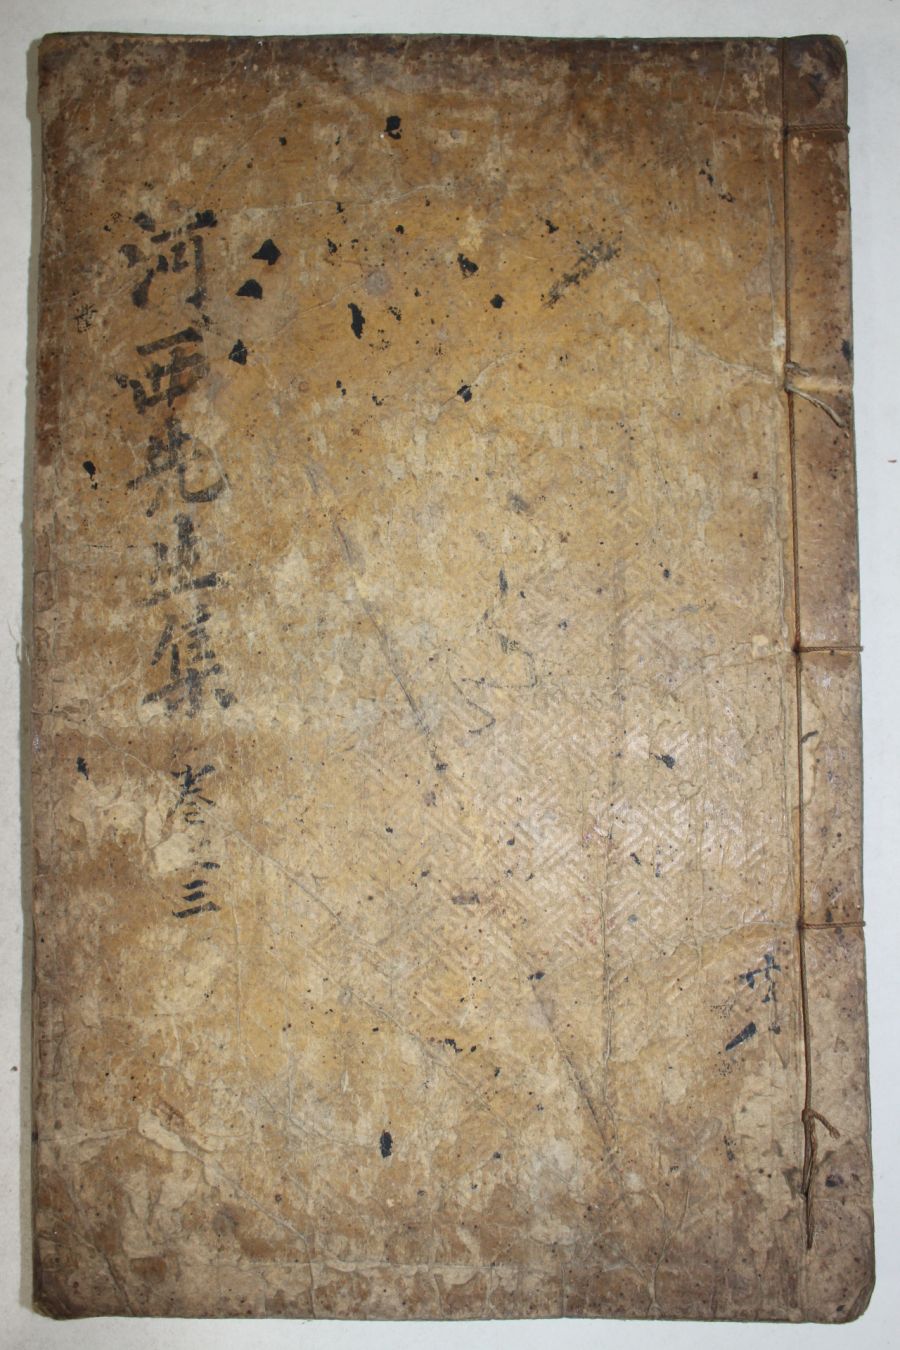 河西先生集 卷之三